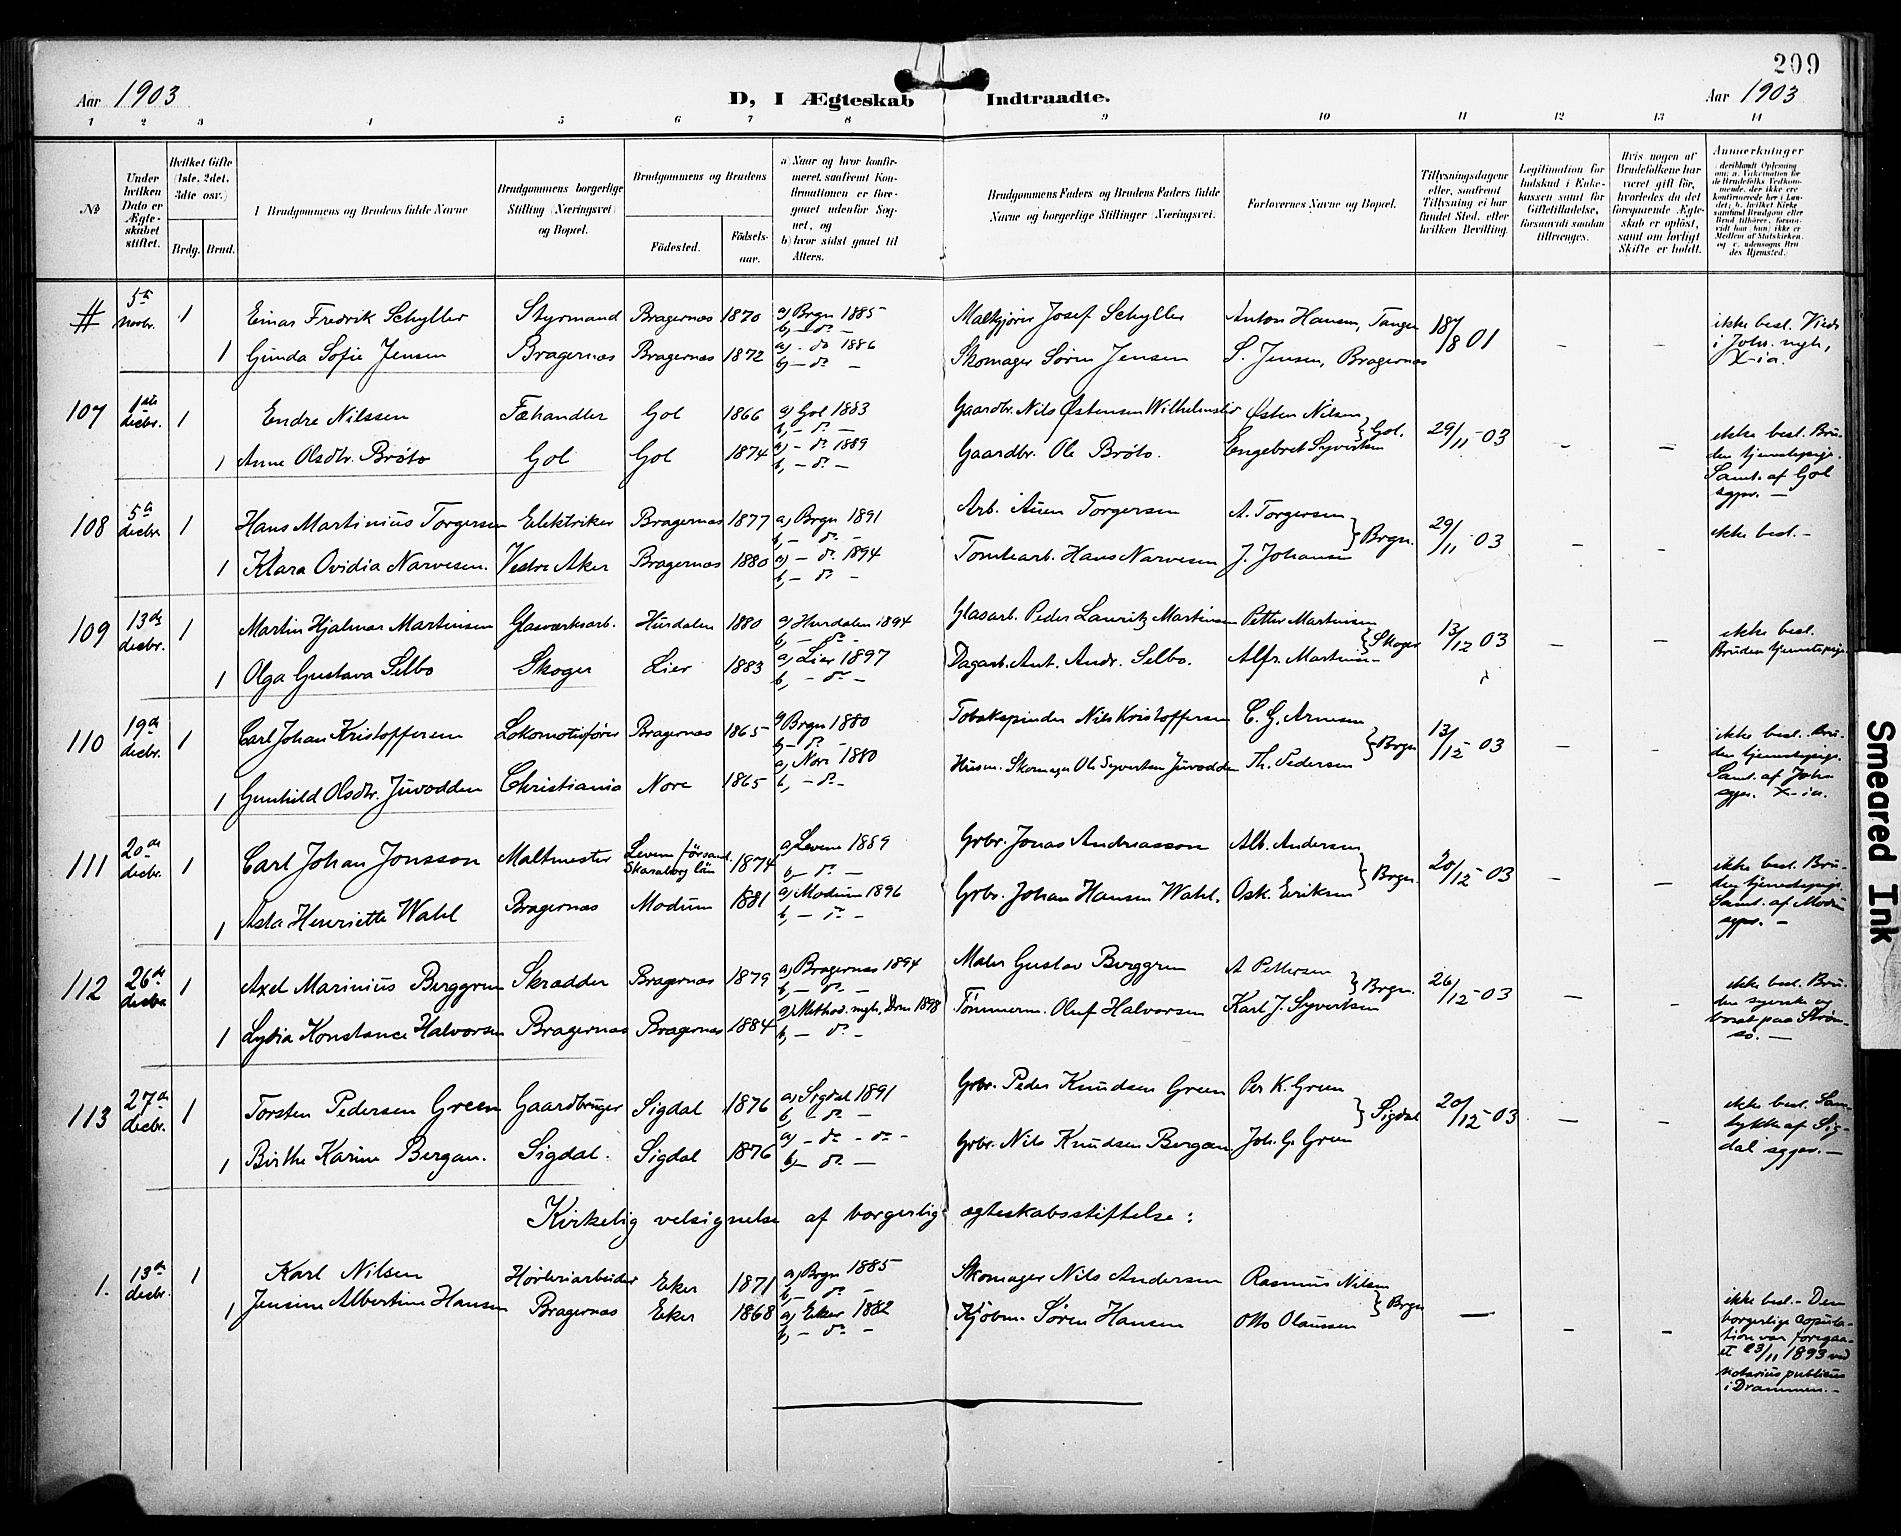 209
Aar 1903 D, I Ægteskab Indtraadte. Aar 1903
1 2 3 4 5 6 7 8 9 10 11 12 13 14
№
Under hvilken Dato er Ægteskabet stiftet.
Hvilket Gifte (1ste, 2det, 3die osv.)
Brdg. Brud.
Brudgommens og Brudens fulde Navne
Brudgommens borgerlige Stilling (Næringsvei) og Bopæl.
Brudgommens og Brudens
Fødested. Fødsels-aar.
a) Naar og hvor konfir-
meret, samfremt Kon-
firmationen er fore-
gaaet udenfor Sog-
net, og
b) hvor sidst gaaet til
Alters.
Brudgommens Faders og Brudens Faders fulde
Navne og borgerlige Stillinger (Næringsvei).
Forlovernes Navne og Bopæl.
Tillysningsdagene
eller, samfremt
Tillysning ei har
fundet Sted, efter
hvilken Bevilling.
Legitimation for
Indskud i Enke-
kassen samt for
Giftetilladelse,
forsaavidt saadan
tiltrænges.
Hvis nogen af
Brudefolkene har
været gift før,
hvorledes da det
foregaaende Ægte-
skab er opløst,
samt om lovligt
Skifte er holdt.
Anmerkninger
# 5te novbr. 1 Einar Fredrik Schyller Styrmand Bragernæs 1870 a) Brgn 1885 b) - do - Josef Schyller Anton Hansen, Tangen 18/8 01 - - ikke besl. Viede i Johs. mgh, X-ia.
1 Gunda Sofie Jensen Bragernæs Bragernæs 1872 a) - do 1886 b) - do - Skomager Søren Jensen S. Jensen, Bragernæs
107 1ste decbr. 1 Endre Nilssen Fæhandler Gol 1866 a) Gol 1883 b, - do - Gaardbr. Nils Østensen Østen Nilsen } Gol. 29/11-03 - - ikke besl. Bruden tjenestepige. Saml. af Gol sgpr. -
1 Anne Olsdtr. Bröto Gol Gol 1874 a) - do 1889 b, - do - Gaardbr. Ole Bröto. Engebret Syvertsen
108 5te decbr. 1 Hans Martinius Torgersen Elektriker Bragernæs 1877 a) Brgn 1891 b, - do - Arb. Torgersen A. Torgersen } Brgn. 29/11 03 - - ikke besl. -
1 Klara Ovidia Narvesen. Vestre Aker Bragernæs 1880 a) - do 1894 b, - do - Tomtearb. Hans Narvesen J. Johansen
109 13de decbr. 1 Martin Hjalmar Martinsen Glasværksarb. Hurdalen 1880 a) Hurdalen 1894 b, - do - Glasarb. Peder Lauritz Martinsen Petter Martinsen } Skoger 13/12 03 - - ikke besl. Bruden tjenestepige
1 Olga Gustava Selbo Skoger Lier 1883 a) Lier 1897 b, - do - Dagarb. Ant. Andr. Selbo. Alfr. Martinsen
110 19de decbr. 1 Carl Johan Kristoffersen Lokomotivfører Bragernæs 1865 a) Brgn 1880 b - do - Tobakspinder Nils Kristoffersen C. G. Arnesen } Brgn 13/12 03 - - ikke besl. Bruden tjenestepige. Saml. af Johs sgpr. X-ia.
1 Gunhild Olsdtr. Juvodden Christiania Nore 1865 a) Nore 1880 b, - do - Husm. Skomager Ole Syvertsen Juvodden Th. Pedersen
111 20de decbr. 1 Carl Johan Jonsson Maltmester Levene församl. Skaraborg län 1874 a) Levene 1889 b - do - Grbr. Jonas Andreasson Alb. Andersen } Brgn. 20/12-03 - - ikke besl. Bruden tjenestepige Saml. af Modum sgpr. -
1 Asta Henriette Wahl Bragernæs Modum 1881 a) Modum 1896 b, - do - Grbr. Johan Hansen Wahl. Osk. Eriksen
112 26de decbr 1 Axel Marinius Berggren Skrædder Bragernæs 1879 a) Bragernæs 1894 b, - do - Maler Gustav Berggren A Pettersen } Brgn. 26/12-03 - - ikke besl. Bruden syerske og bosat paa Strømsø. -
1 Lydia Konstance Halvorsen Bragernæs Bragernæs 1884 a) Method. mgh, Drm 1898 b, - do - Tømmerm. Oluf Halvorsen Karl J. Syvertsen
113 27de decbr. 1 Torsten Pedersen Green Gaardbruger Sigdal 1876 a) Sigdal 1891 b, do - Grbr. Peder Knudsen Green Per K. Green } Sigdal 20/12-03 - - ikke besl. Samtykke af Sigdal sgpr. -
1 Birthe Karine Bergan. Sigdal. Sigdal 1876 a) - do - do - b) - do - Grbr. Nils Knudsen Bergan Joh. G. Green
Kirkelig velsignelse af borgerlig ægteskabsstiftelse:
1. 13de decbr. 1 Karl Nilsen Høvleriarbeider Eker 1871 a) Brgn 1885 b, - do - Skomager Nils Andersen Rasmus Nilsen } Brgn - - - ikke besl. - Den borgerlige copulation var foregaaet 23/11 1893 ved notarius publicus i Drammen. -
1 Jensine Albertine Hansen Bragernæs Eker 1868 a) Eker 1882 b, - do - Kjøbm. Søren Hansen Otto Olaussen
Smeared Ink